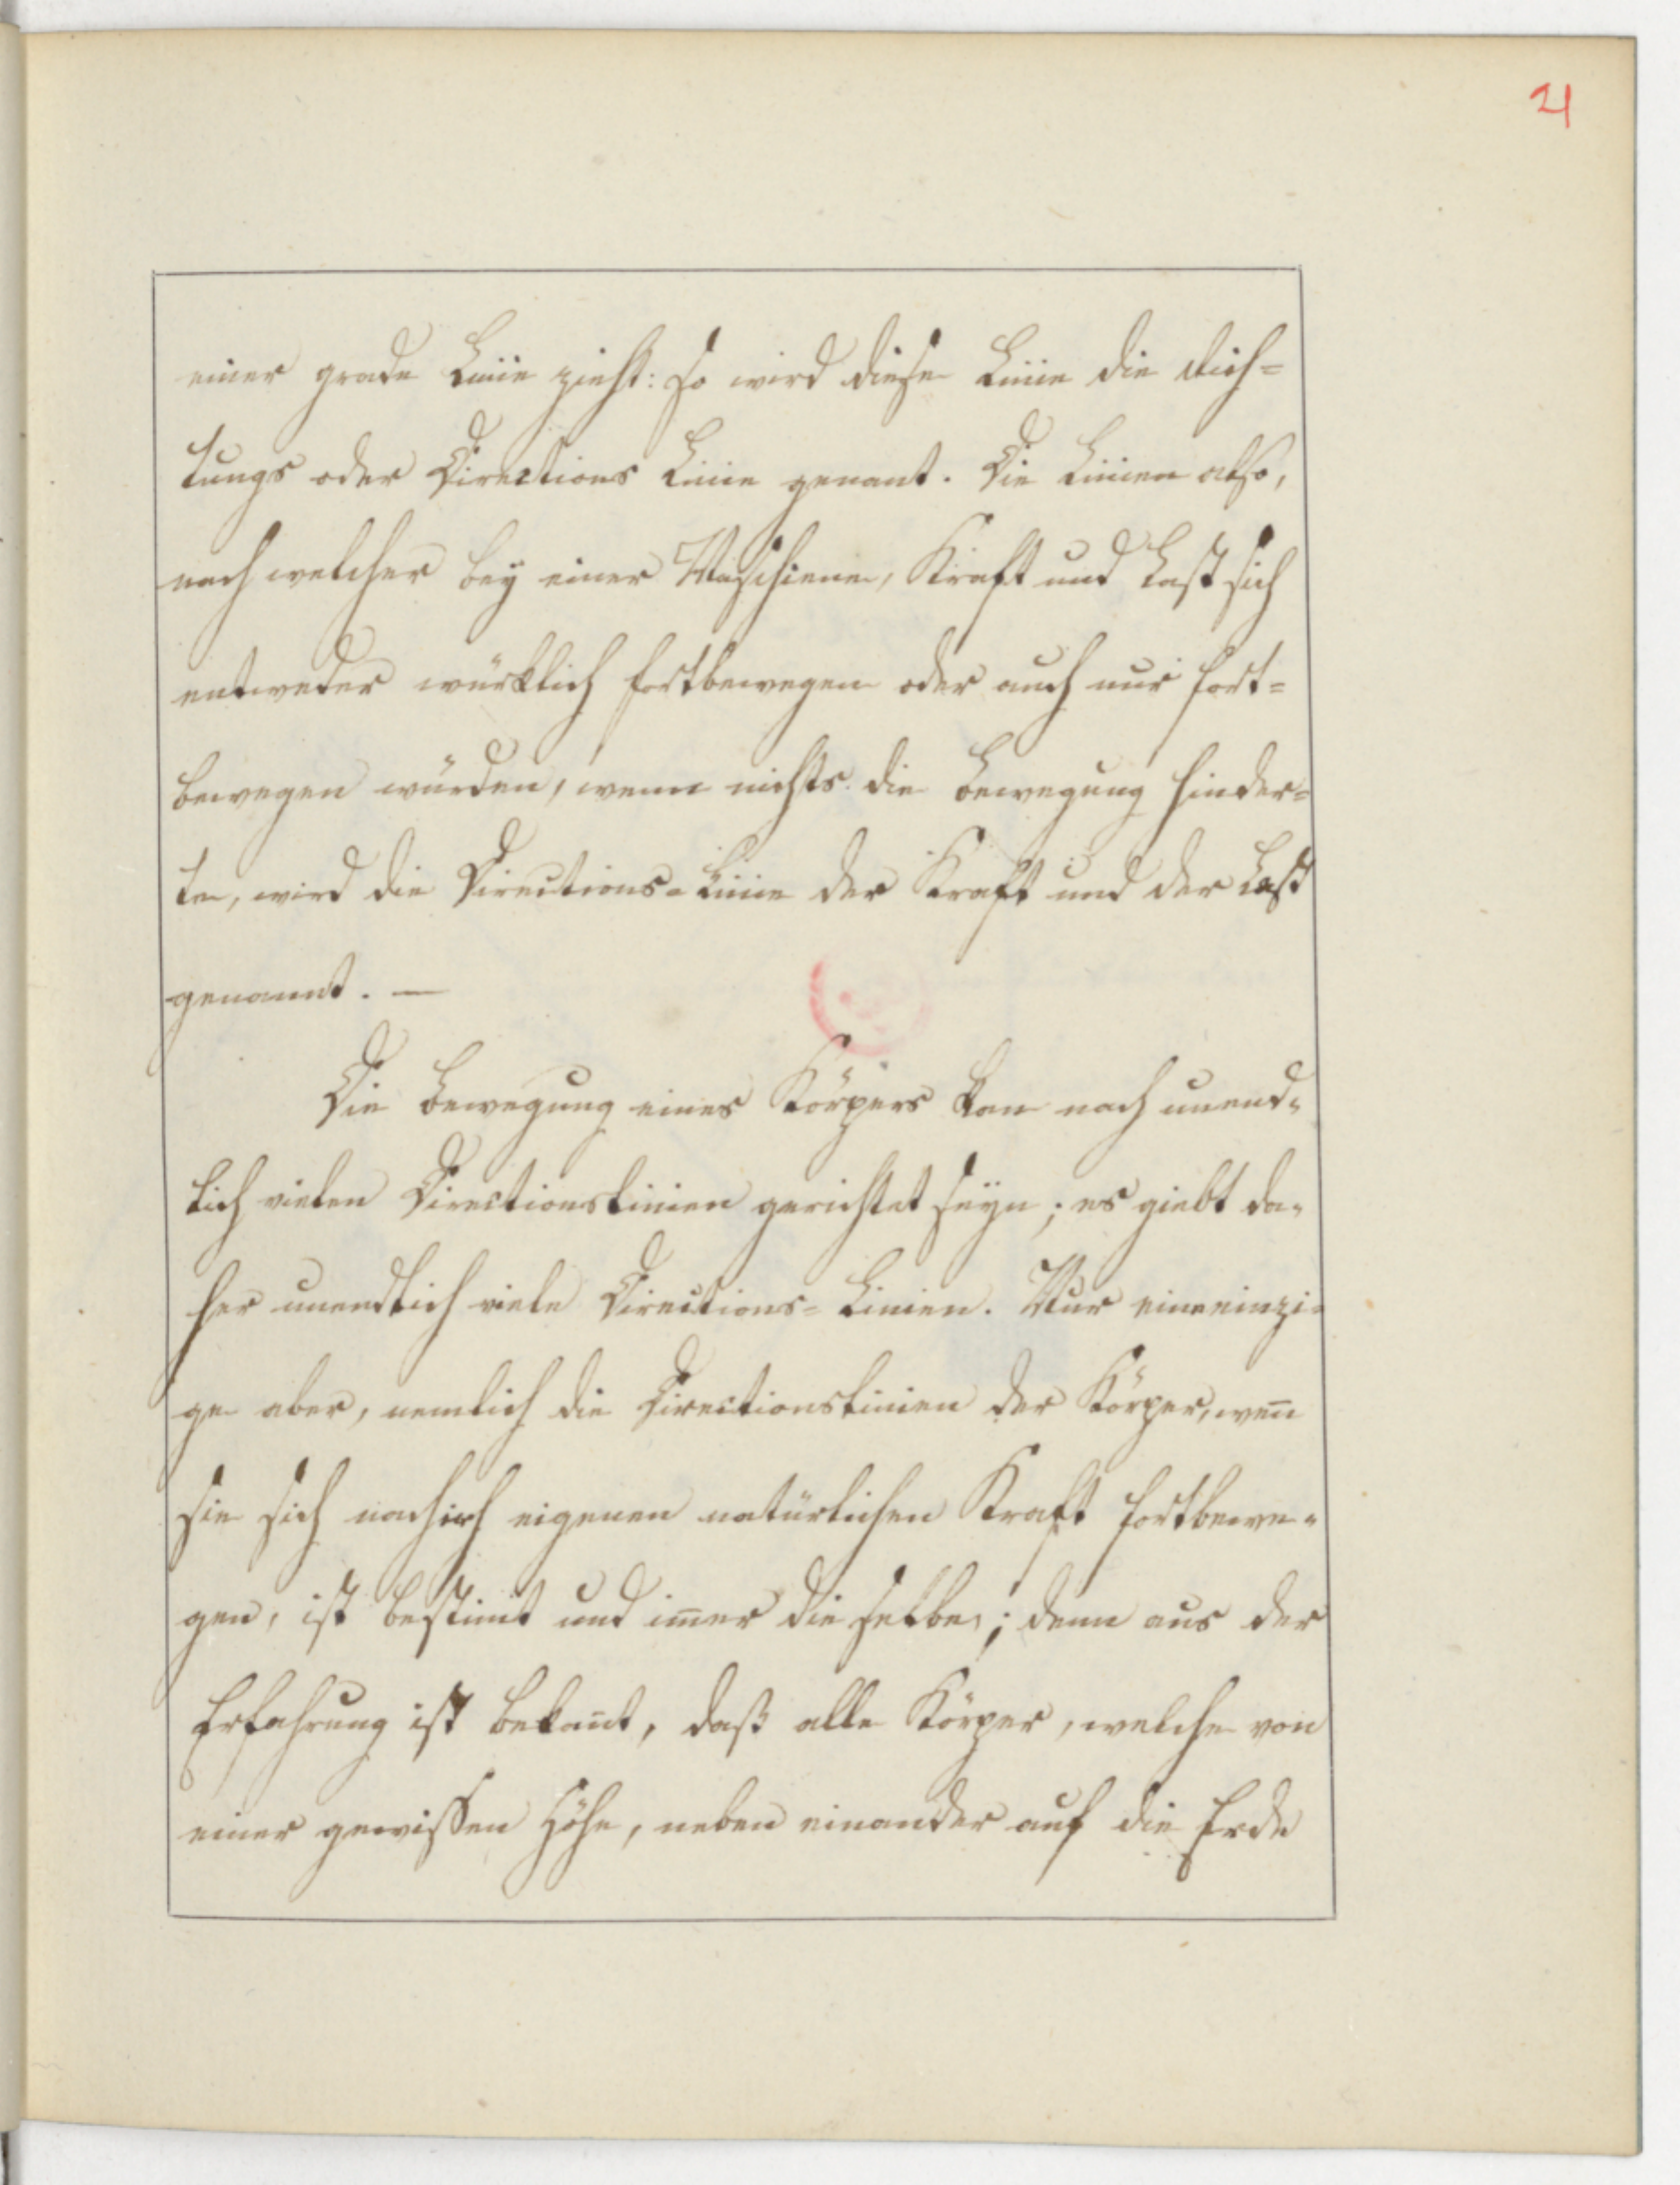 21
einer grade Linie zieht: so wird diese Linie die Rich=
tungs oder Directions Linie genant. Die Linien also,
nach welcher bey einer Maschiene, Kraft und Last sich
entweder würklich fortbewegen oder auch nur fort=
bewegen würden, wenn nichts die Bewegung hinder=
te, wird die Directions=Linie der Kraft und der Last
genannt. —
Die Bewegung eines Körpers kan nach unend=
lich vielen Directionslinien gerichtet seyn; es giebt da=
her unendlich viele Directions=Linien. Nur eine einzi=
ge aber, nemlich die Directionslinien der Körper, wen̄
sie sich nach eigenen natürlichen Kraft fortbewe=
gen, ist bestimt und im̄er die selbe; denn aus der
Erfahrung ist bekan̄t, daß alle Körper, welche von
einer gewissen Höhe, neben einander auf die Erde